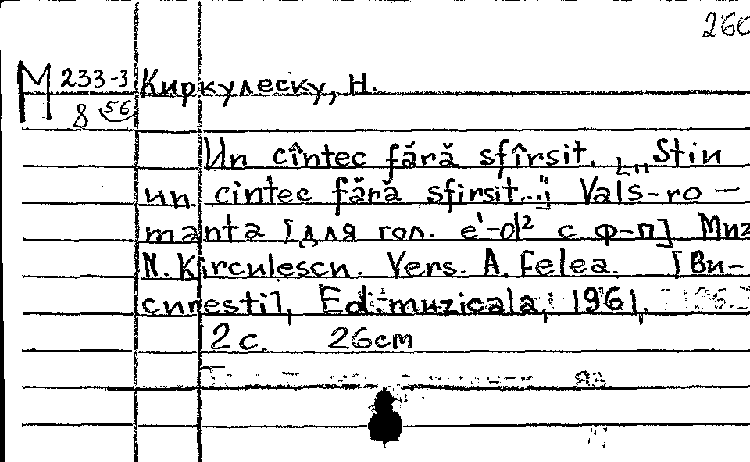 260
М 233-3 Киркулеску, Н.
8 56
Un cîntec fără sfîrsit. [„Stiu
un cintec fără sfirsit..."] Vals-ro-
manta [для гол. e¹-d² с ф-п] Muz
N. Kirculescu. Vers. A. Felea. [Bu-
curesti], Ed. muzicala, 1961.
2 с. 26cm